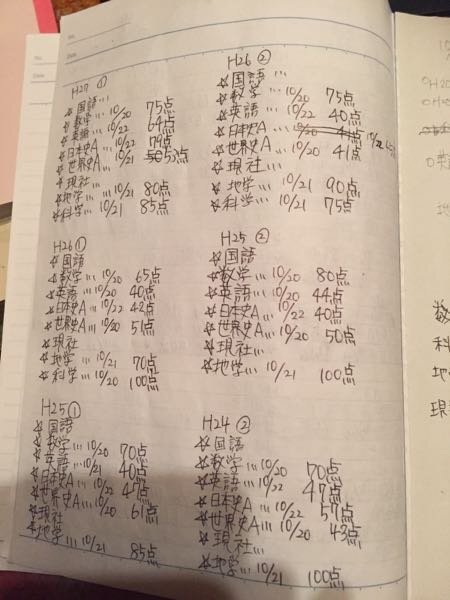 No.
Date
H27 ①
☆国語…
☆数学…10/20 75点
☆英語…10/22 64点
☆日本史A…
☆世界史A…10/21 53点
☆現社…
☆地学…10/21 80点
☆科学…10/21 85点
H26 ②
☆国語…
☆数学…10/20 75点
☆英語…10/22 40点
☆日本史A…10/22
☆世界史A…10/20 41点
☆現社…
☆地学…10/21 90点
☆科学…10/21 75点
H26 ①
☆国語
☆数学…10/20 65点
☆英語…10/20 40点
☆日本史A…10/22 42点
☆世界史A…10/20 51点
☆現社
☆地学…10/21 70点
☆科学…10/20 100点
H25 ②
☆国語
☆数学…10/20 80点
☆英語…10/20 44点
☆日本史A…10/22 40点
☆世界史A…10/20 50点
☆現社…
☆地学…10/21 100点
H25 ①
☆国語
☆数学…10/20 70点
☆英語…10/21 40点
☆日本史A… 47点
☆世界史A…10/20 61点
☆現社
☆地学
…10/21 85点
H24 ②
☆国語
☆数学…10/20 70点
☆英語…10/22 47点
☆日本史A…10/22 57点
☆世界史A…10/20 43点
☆現社…
☆地学…10/21 100点